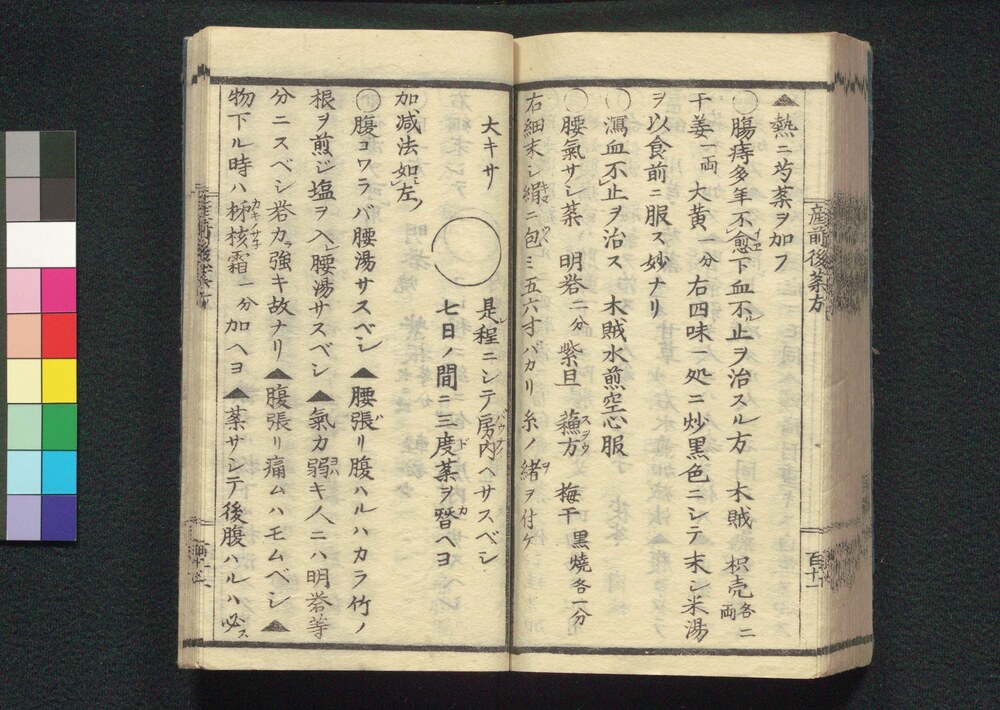 ▲熱ニ芍薬ヲ加フ
○腸痔多年不愈下血不止ヲ治スル方 木賊 枳売各二両
干姜一両 大黄一分 右四味一処ニ炒黒色ニシテ末シ米湯
ヲ以食前ニ服ス妙ナリ
○瀉血不止ヲ治ス 木賊水煎空心服
○腰氣サシ薬 明礬二分 紫旦 蘓方 梅干 黒焼各一分
右細末シ絹ニ包ミ五六寸バカリ糸ノ緒ヲ付ケ
産前後薬方
百十一
大キサ ○ 是程ニシテ房内ヘサスベシ
七日ノ間ニ三度薬ヲ替ヘヨ
加减法如左
○腹コワラバ腰湯サスベシ▲腰張リ腹ハルハカラ竹ノ
根ヲ煎ジ塩ヲ入腰湯サスベシ▲氣力弱キ人ニハ明礬等
分ニスベシ礬カ強キ故ナリ▲腹張リ痛ムハモムベシ▲
物下ル時ハ核霜一分加ヘヨ▲薬サシテ後腹ハルハ必ス